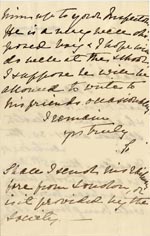 him up to your Inspector
He is a very well dis
posed boy & I hope will
do well at the school
I suppose he will be
allowed to write to
his friends occasionally
I remain
yrs truly
Shall I send his
fare from London or
is it provided by the
Society